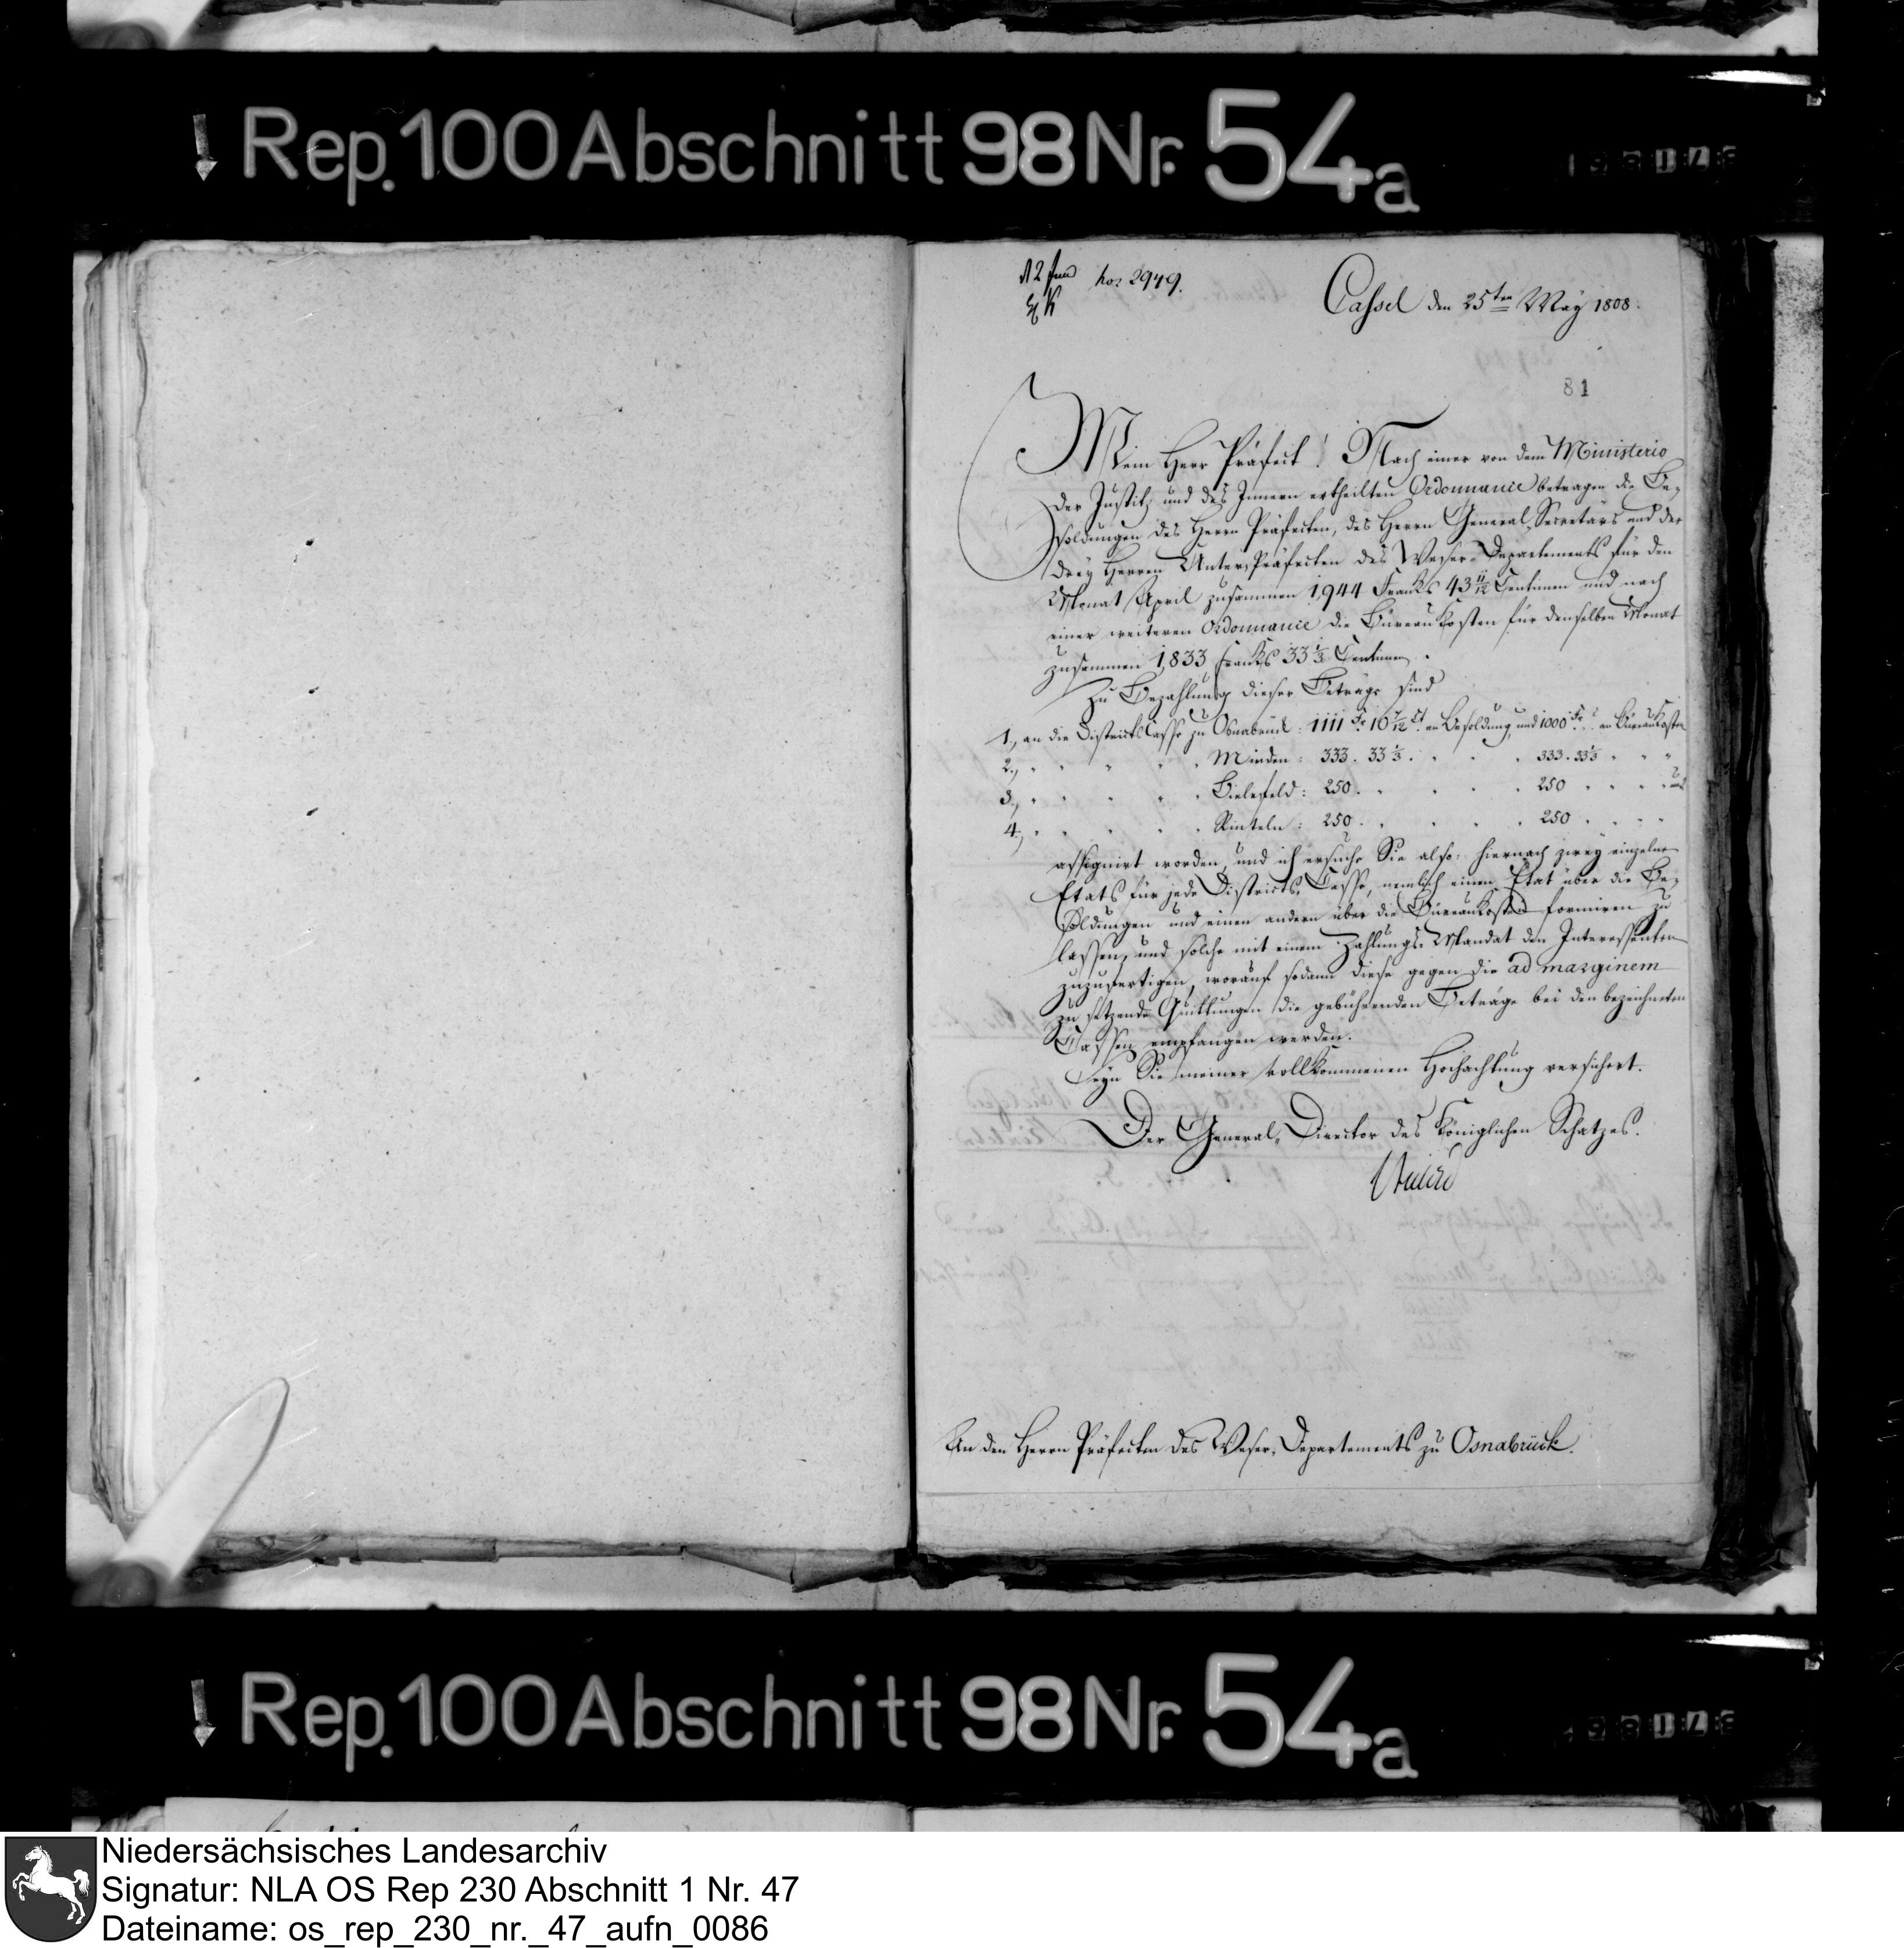 Rep. 100 Abschnitt 98 Nr. 54a
No: 2949.
Cassel den 25ten May 1808.
81
Mein Herr Präfect! Nach einer von dem Ministerio
der Justitz und des Innern ertheilten Ordonnance betragen die Be-
soldungen des Herrn Präfecten, des Herrn General-Secretärs und der
drey Herren Unter-Präfecten des Weser-Departements für den
Monat April zusammen 1,944 Franks 43 11/12 Centimen und nach
einer weiteren Ordonnance die Büreau Kosten für denselben Monat
zusammen 1,833 Franks 33 1/3 Centimen.
Zu Bezahlung dieser Beträge sind
1., an die Districts Casse zu Osnabrück: 1111 Fr. 10 7/12 Ct. an Besoldung, und 1000 Fr. an Büreau Kosten
2., " " " " " Minden: 333. 33 1/3. " " " 333. 33 1/3 " " "
3., " " " " " Bielefeld: 250. " " " " 250 " " " " und
4., " " " " " Rinteln: 250. " " " " 250 " " " "
assignirt worden, und ich ersuche Sie also: hiernach zwey einzelne
Etats für jede Districts-Casse, nemlich einen Etat über die Be-
soldungen und einen andern über die Büreau Kosten formiren zu
lassen, und solche mit einem Zahlungs-Mandat den Interessenten
zuzufertigen, worauf sodann diese gegen die ad marginem
zu setzende Quittungen die gebührenden Beträge bei den bezeichneten
Cassen empfangen werden.
Seyn Sie meiner vollkommenen Hochachtung versichert.
Der General-Director des Königlichen Schatzes.
An den Herrn Präfecten des Weser-Departements zu Osnabrück.
Rep. 100 Abschnitt 98 Nr. 54a
Niedersächsisches Landesarchiv
Signatur: NLA OS Rep 230 Abschnitt 1 Nr. 47
Dateiname: os_rep_230_nr._47_aufn_0086